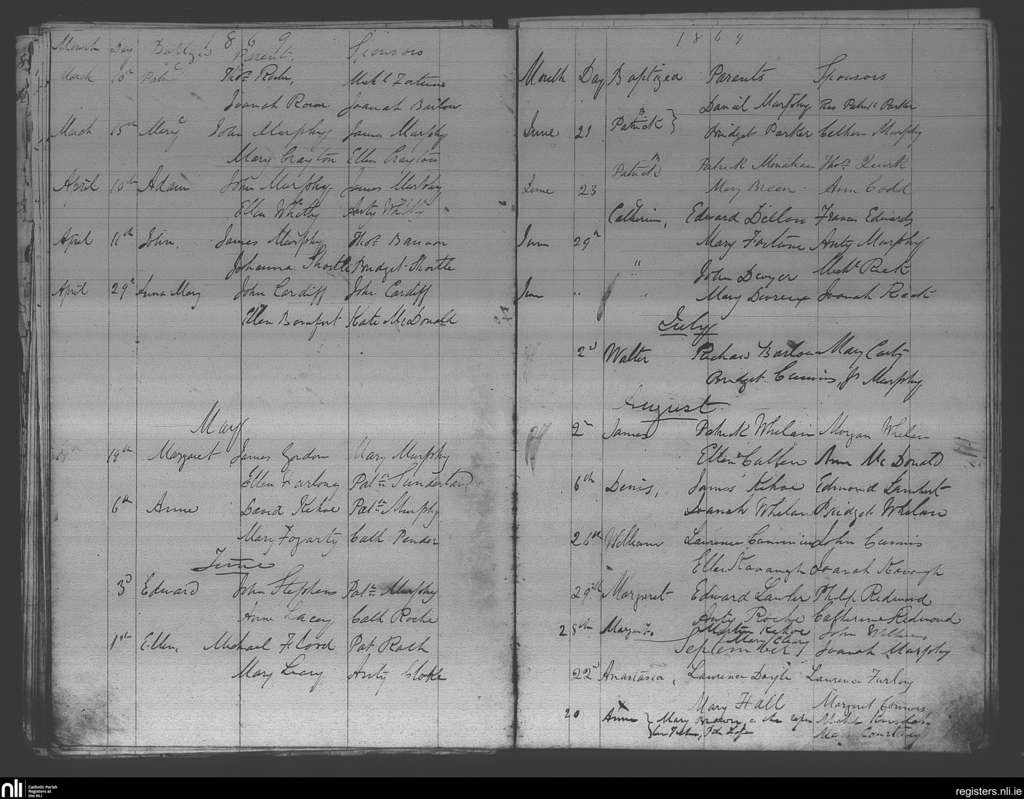 Month Day Baptized 8 6 9 Parents Sponsors
March 10th Thos Roche,
Joanah Barlow
March 15th Mary John Murphy James Murphy
Mary Crayton Ellen Crayton
April 10th Adam John Murphy James Murphy
Ellen Whitty Anty Whitty
April 11th John. James Murphy Thos Bannon
Johanna Shortle Bridget Shortle
April 29th Anna Mary John Cardiff John Cardiff
Ellen Kate McDonald
May
19th Margaret James Gordon Mary Murphy
Ellen Patk Sunderland
6th Anne David Kehoe Patk Murphy
Mary Fogarty Cath Pender
June
3d Edward John Stephens Patk Murphy
Anne Lacey Cath Roche
1st Ellen, Michael Flood Pat Rach
Mary Leary Anty Cloke
1869
Month Day Baptized Parents Sponsors
Daniel Murphy Revd Patrick Parker
June 21 Patrick } Bridget Parker Cathern Murphy
Patrick Patrick Monahan Thos Quirk
June 23 Mary Breen Ann Codd
Catherine, Edward Dillon Francis Edwards
June 29th Mary Fortune Anty Murphy
" John Dwyer Michl Rack
June " " Mary Devreux Joanah Rack
July
2d Walter Richard Barlow Mary Carty
Bridget Cummins Js Murphy
August
2nd James Patrick Whelan Morgan Whelan
Ellen Cullen Ann McDonald
6th Denis, James Kehoe Edmond Lambert
Joanah Whelan Bridget Whelan
26th William Laurence Cummins John Cummins
Ellen Kavanagh Joanah Kavanagh
29th Margaret Edward Lawler Philip Redmond
Anty Roche Catherine Redmond
28th Margaret Martin Kehoe John
Mary Cleary
September Joanah Murphy
22d Anastasia, Laurence Doyle Laurence Furlong
Mary Hall Margaret Connors
20 Anne } Mary
Mary Courtney
nli Catholic Parish Registers at the NLI registers.nli.ie